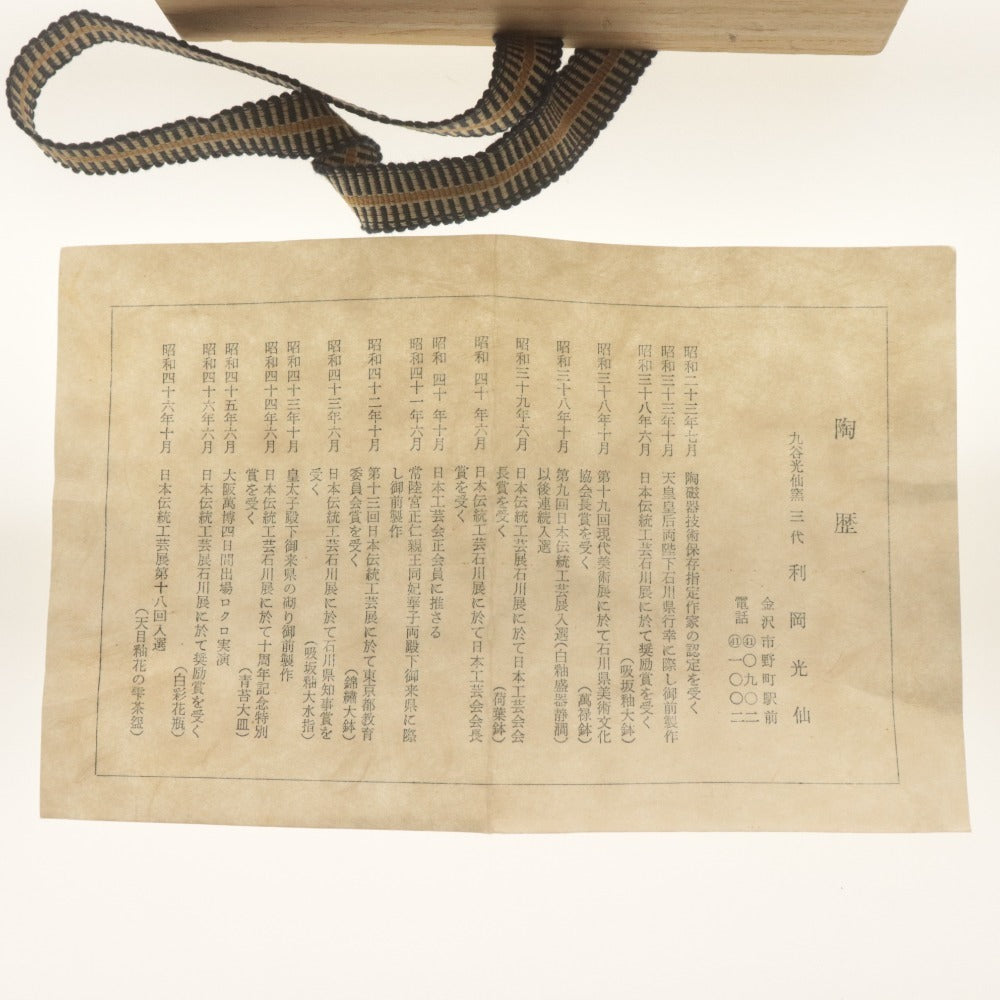 陶歴
九谷光仙窯 三代 利岡光仙
金沢市野町駅前
電話 ㊶〇九〇二
㊶一〇〇二
昭和二十三年七月 陶磁器技術保存指定作家の認定を受く
昭和三十三年十月 天皇皇后両陛下石川県行幸に際し御前製作
昭和三十八年六月 日本伝統工芸石川展に於て奨励賞を受く
(吸坂釉大鉢)
昭和三十八年十月 第十九回現代美術展にて石川県美術文化
協会長賞を受く (萬禄鉢)
昭和三十八年十月 第九回日本伝統工芸展入選(白釉盛器静潤)
以後連続入選
昭和三十九年六月 日本伝統工芸石川展に於て日本工芸会会
長賞を受く (荷葉鉢)
昭和四十年六月 日本伝統工芸石川展に於て日本工芸会会長
賞を受く
昭和四十年十月 日本工芸会正会員に推さる
昭和四十一年六月 常陸宮正仁親王同妃華子両殿下御来県に際
し御前製作
昭和四十二年十月 第十三回日本伝統工芸展に於て東京都教育
委員会賞を受く (錦繍大鉢)
昭和四十三年六月 日本伝統工芸石川展に於て石川県知事賞を
受く (吸坂釉大水指)
昭和四十三年十月 皇太子殿下御来県の砌り御前製作
昭和四十四年六月 日本伝統工芸石川展に於て十周年記念特別
賞を受く (青苔大皿)
昭和四十五年六月 大阪萬博四日間出場ロクロ実演
昭和四十六年六月 日本伝統工芸展石川展に於て奨励賞を受く
(白彩花瓶)
昭和四十六年十月 日本伝統工芸展第十八回入選
(天目釉花の雫茶盌)